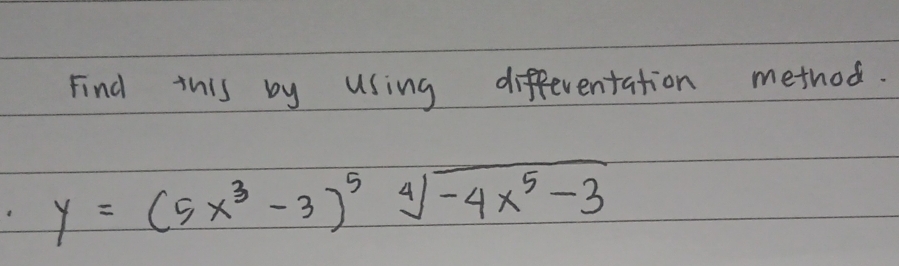 Find this by using differentation method.
. y = (5x³ - 3)⁵ ⁴√-4x⁵ - 3